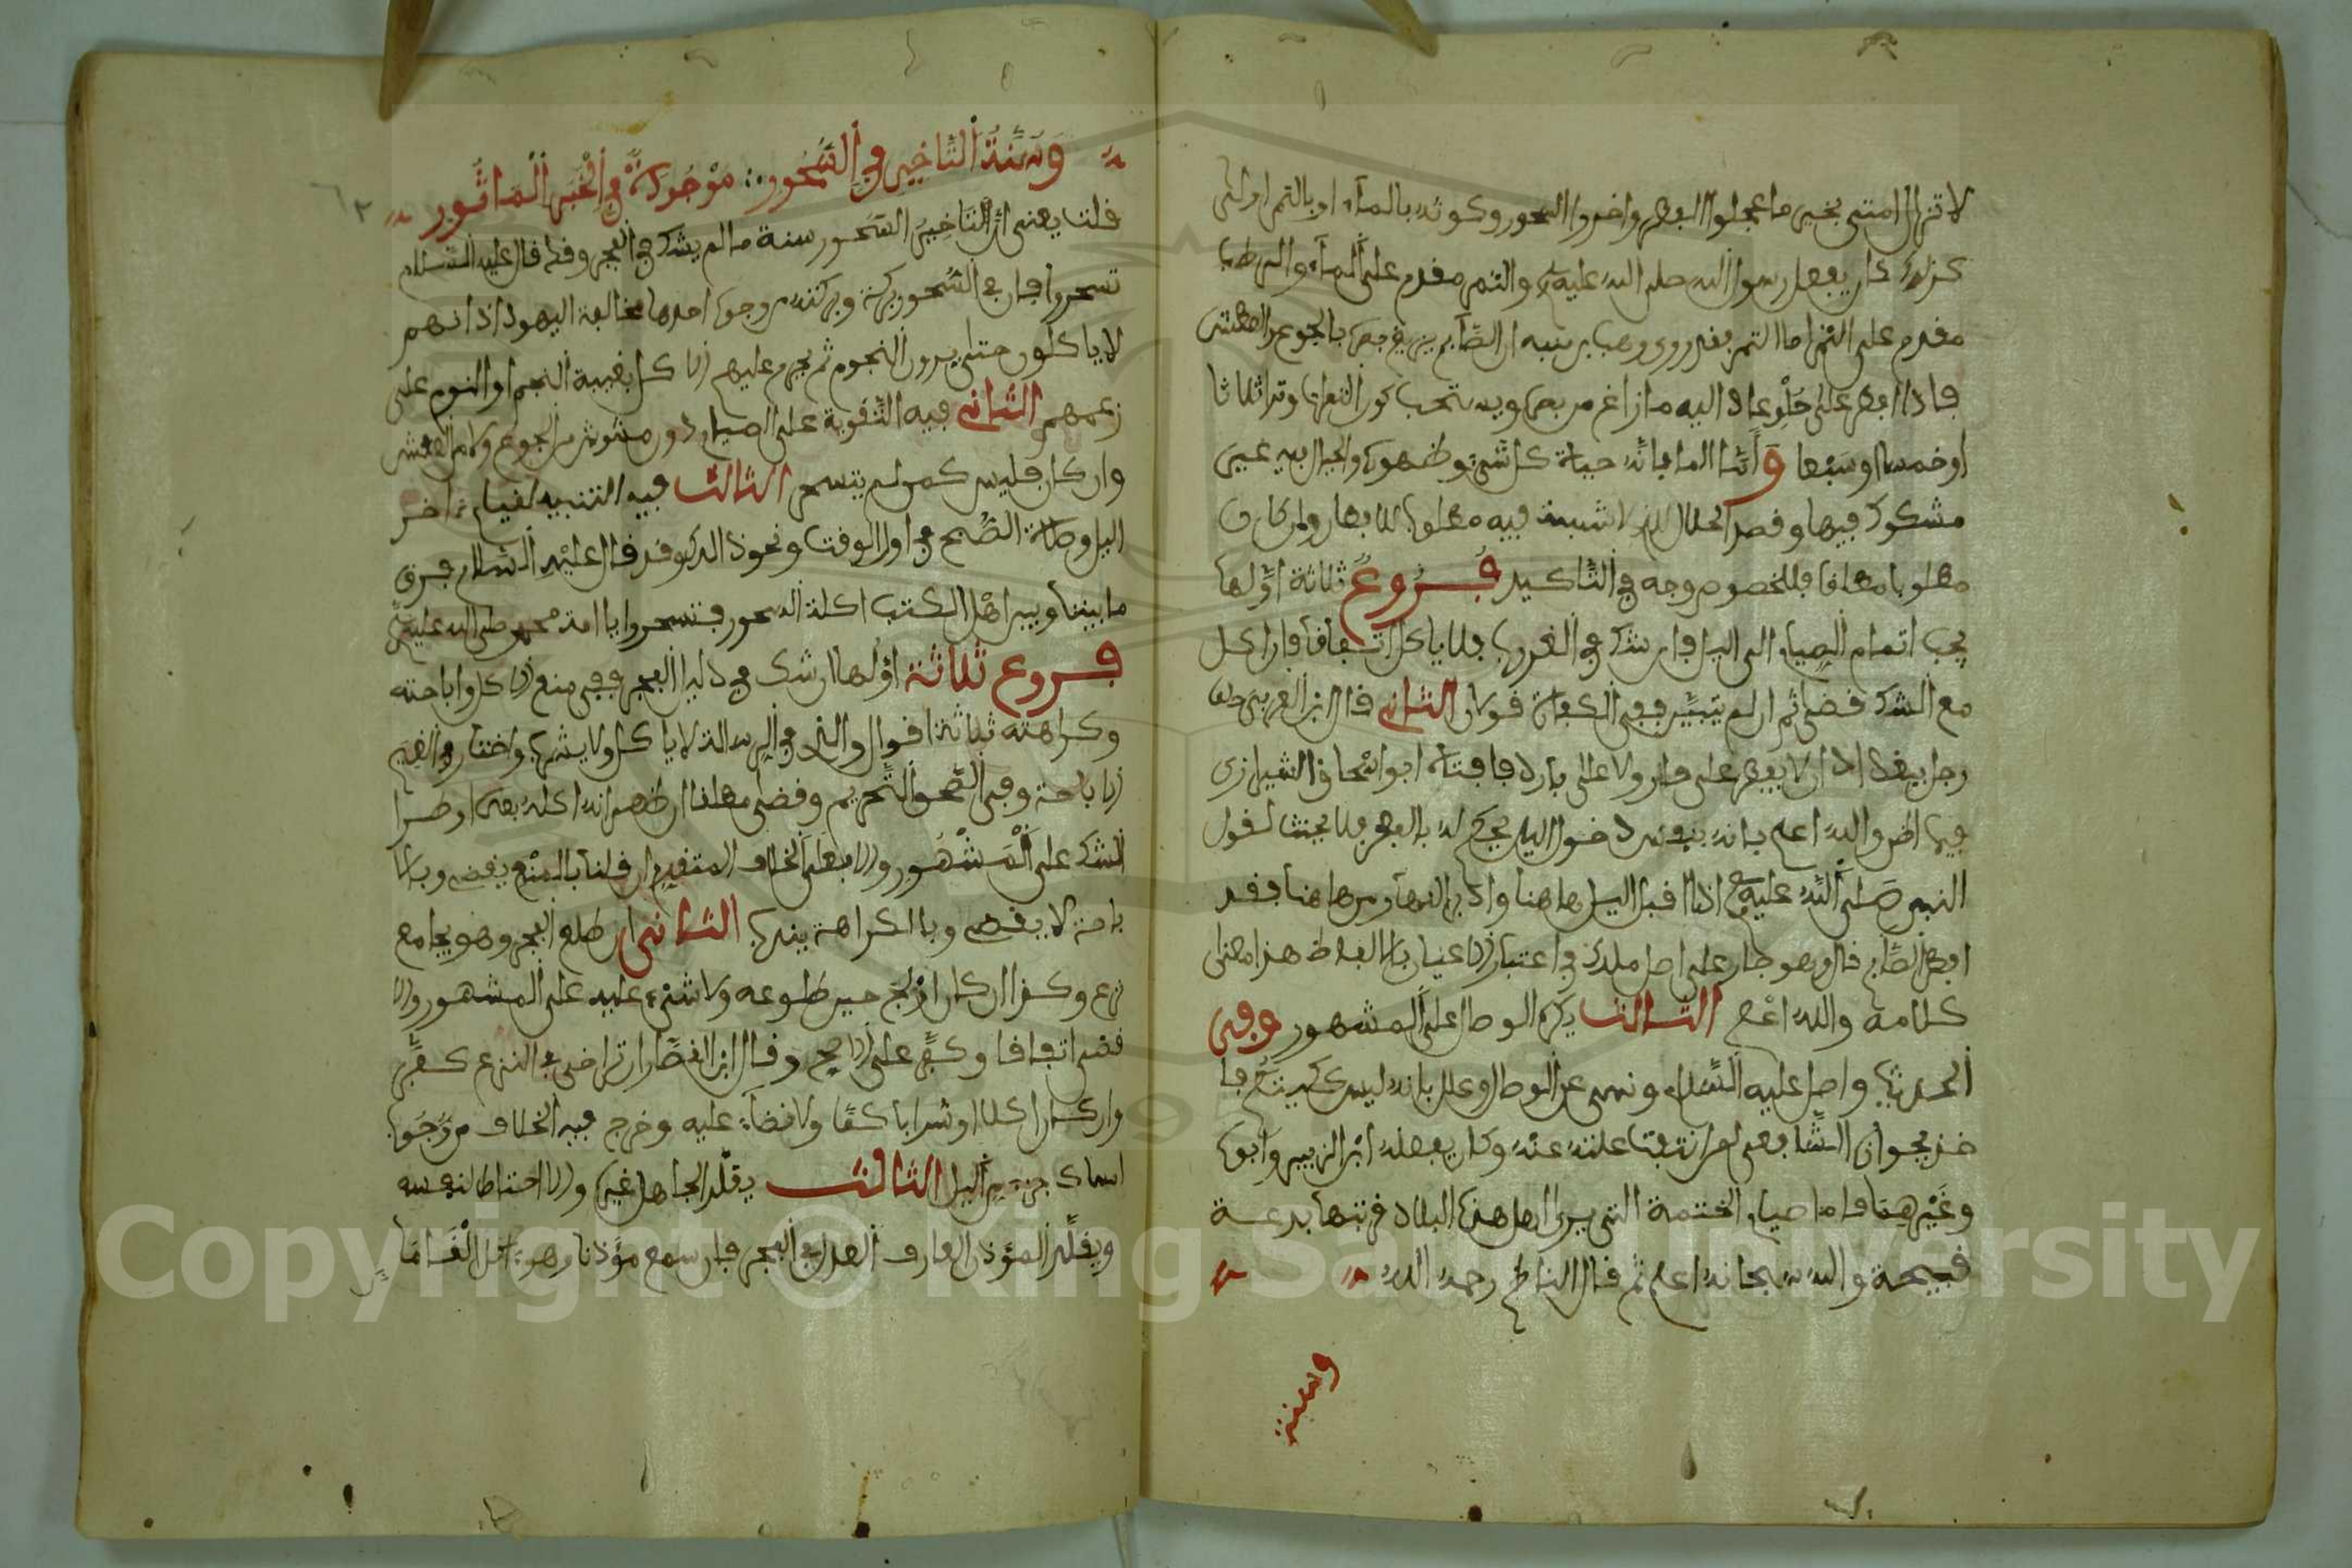 لا تزال امتي بخير ما عجلوا الفطر واخروا السحور وكونه بالماء او بالتمر اولى
كذلك كان يفعل رسول الله صلى الله عليه والتمر مقدم على الماء والرطب
مقدم على التمر اما التمر فقد روى وهب بن منبه ان الصائم يزيغ بصره بالجوع والعطش
فاذا افطر على حلو عاد اليه ما زاغ من بصره ويستحب كون التمرات وترا ثلاثا
او خمسا او سبعا وأما الماء فانه حياة كل شيء وطهوره والحلال بين غير
مشكوك فيها وقصد الحلال الذي لا شبهة فيه مطلوب للافطار وان كان
مطلوبا مطلقا فللخصوص وجه في التأكيد فروع ثلاثة أولها
يجب اتمام الصيام الى الليل فان شك في الغروب فلا ياكل اتفاقا فان اكل
مع الشك قضى ثم ان لم يتبين ففي الكفارة قولان الثاني قال ابن العربي حلف
رجل ببغداد ان لا يفطر على حار ولا على بارد فافتاه ابو اسحاق الشيرازي
فيما اظن والله اعلم بانه بنفس دخول الليل يحكم له بالفطر فلا يحنث لقول
النبي صلى الله عليه اذا اقبل الليل من هاهنا وادبر النهار من هاهنا فقد
افطر الصائم قال وهو جار على اصل ملك في اعتبار الاعيان بالالفاظ هذا معنى
كلامه والله اعلم الثالث يكره الوصال على المشهور وفي
الحديث واصل عليه السلام ونهى عن الوصال وعلل بانه ليس كهيئتكم
الشافعي لمن انتفت علته عنه وكان يفعله ابن الزبير وابوه
وغيرهما فاما صيام الختمة التي يرى اهل هذه البلاد فرتبها بدعة
قبيحة والله سبحانه اعلم ثم قال الناظم رحمه الله
وسنة
وسنة التاخير في السحور : موجودة في الخبر الماثور
قلت يعني ان التاخير السحور سنة ما لم يشك في الفجر وقد قال عليه السلام
تسحروا فان في السحور بركة وبركته من وجوه احدها مخالفة اليهود اذ انهم
لا ياكلون حتى يرون النجوم ثم يحرم عليهم الاكل بغيبة النجم او النوم على
زعمهم الثاني فيه التقوية على الصيام دون مشوش من الجوع ولا من العطش
وان كان فليس كمن لم يتسحر الثالث فيه التنبيه لقيام اخر
الليل وصلاة الصبح في اول الوقت ونحو ذلك وقد قال عليه السلام فرق
ما بيننا وبين اهل الكتب اكلة السحور فتسحروا يا امة محمد صلى الله عليه
فروع ثلاثة اولها ان شك في دليل الفجر ففي منع الاكل واباحته
وكراهته ثلاثة اقوال والذي في الرسالة لا ياكل ولا يشرب واختار
الاباحة وفي الصحو التحريم وقضى مطلقا ان ظهر انه اكله بعد او طرا
الشك على المشهور والا فعلى الخلاف المتقدم ان قلنا بالمنع يقضي وبالا
باحة لا يقضي وبالكراهة يندب الثاني ان طلع الفجر وهو يجامع
نزع وكفر ان كان اولج حين طلوعه ولا شيء عليه على المشهور والا
قضى اتفاقا وكفر على الاصح وقال ابن القصار ان تراخى في النزع كفر
وان كان اكلا او شرابا كفا ولا قضاء عليه وخرج فيه الخلاف من وجوب
امساك جزء من الليل الثالث يقلد الجاهل غيره والا احتاط لنفسه
ويقلد المؤذن العارف العدل في الفجر فان سمع مؤذنا وهو ياكل القا ما